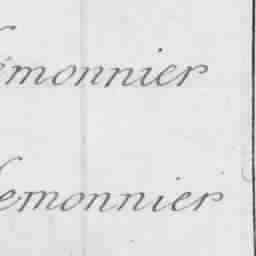 emonnier
lemonnier